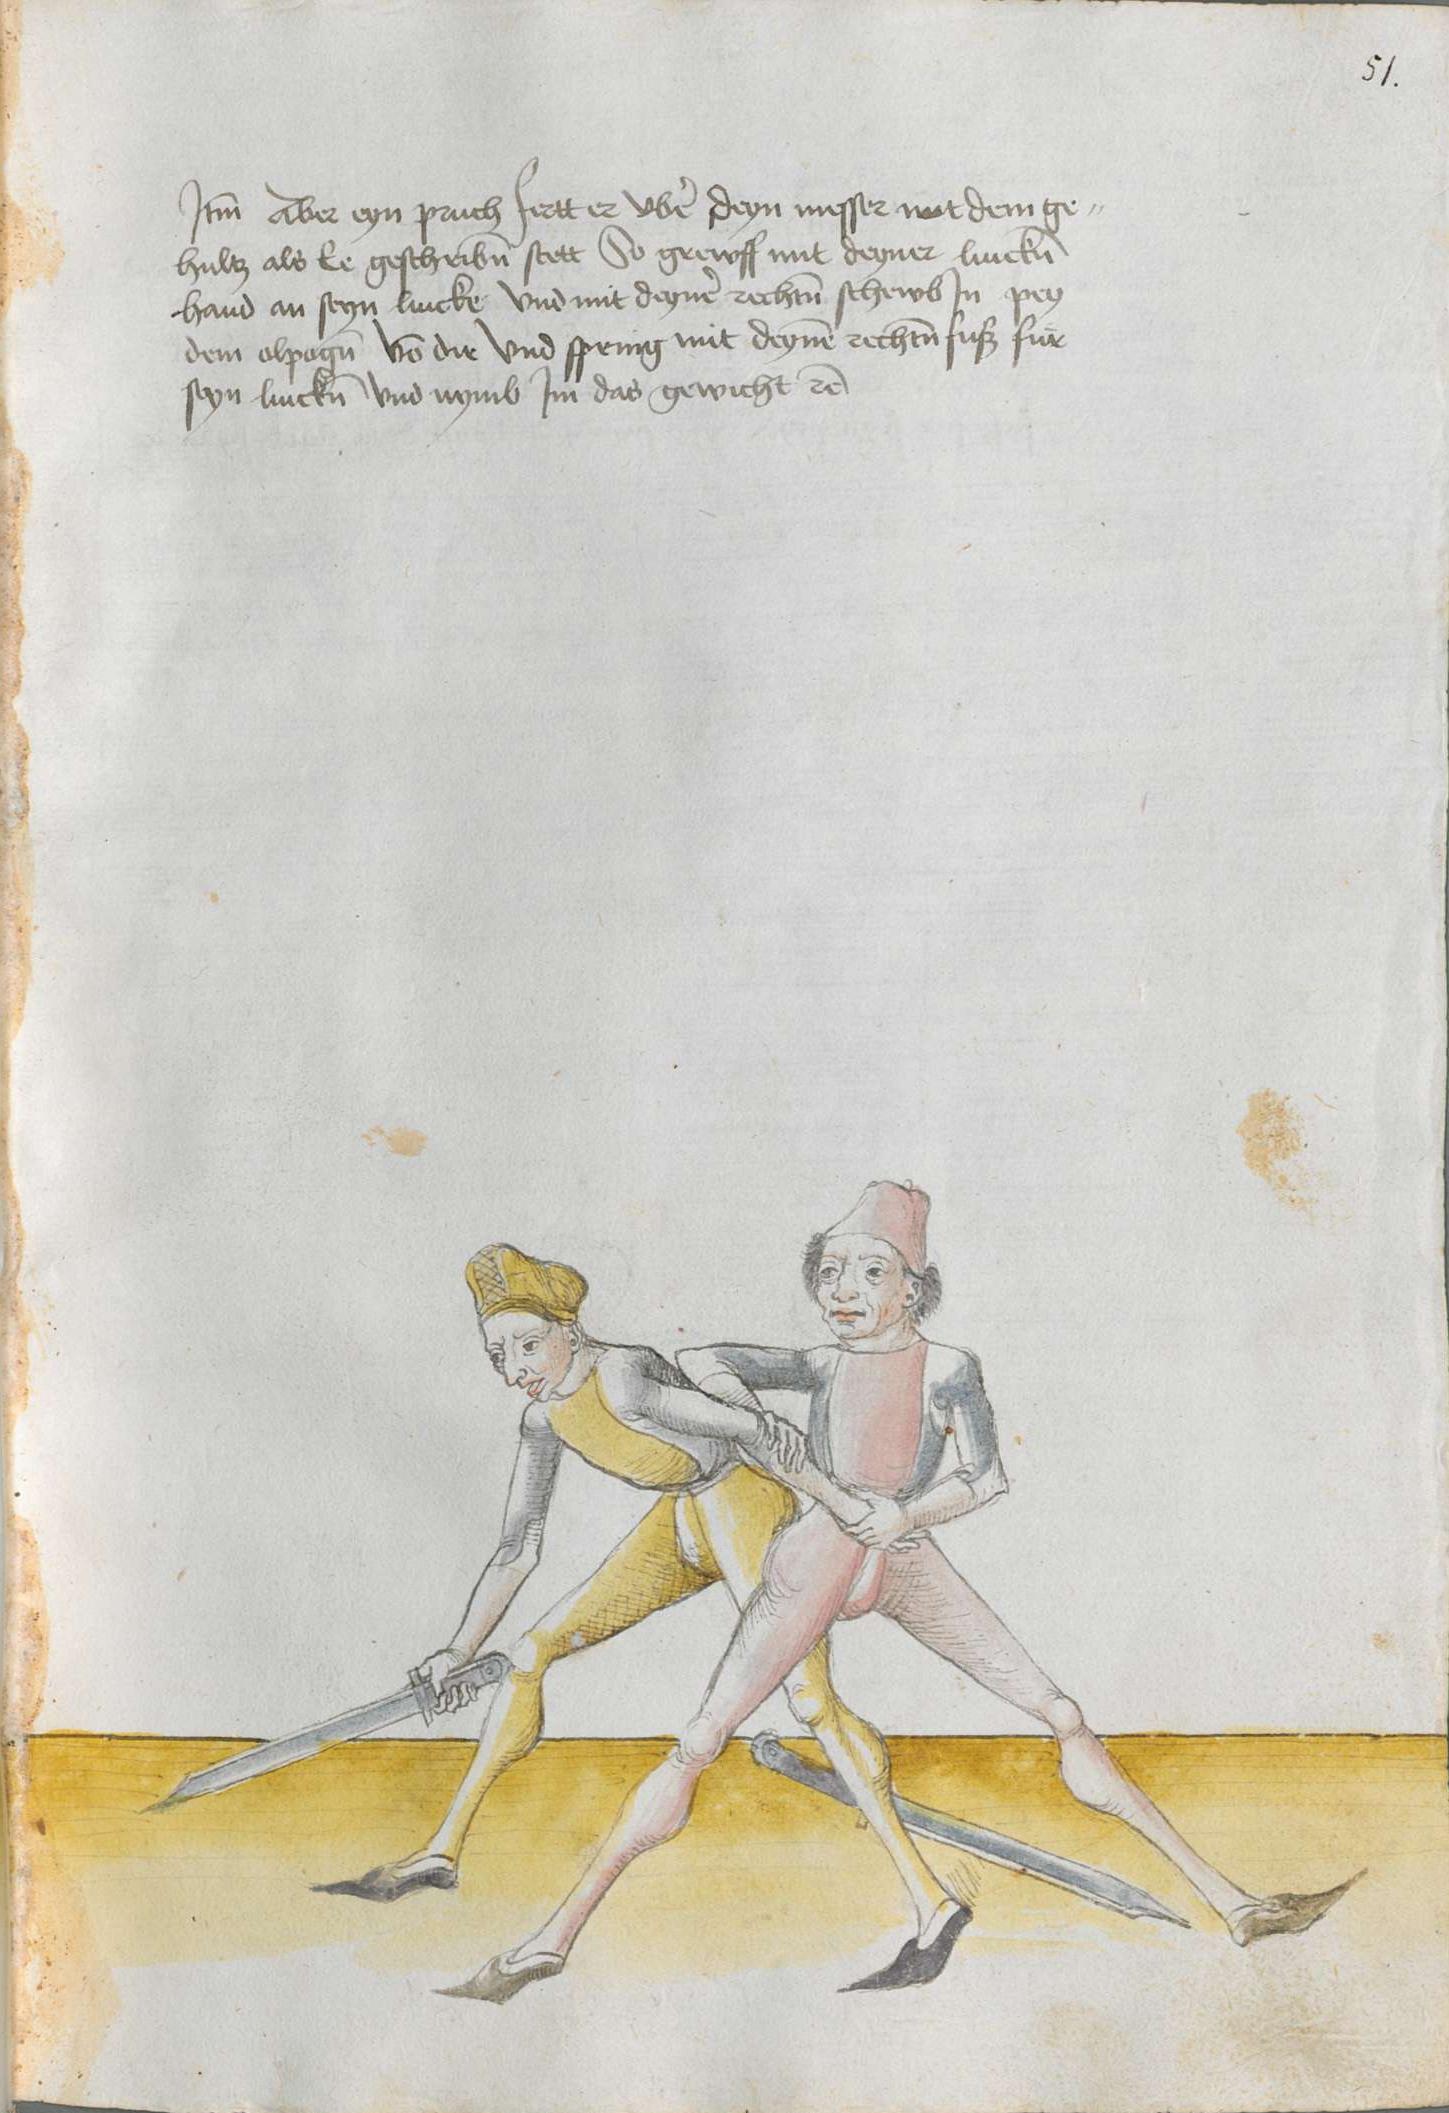 51.
Itm̄ Aber eyn pruch fertt er vbe᷑ deyn messer mit dem ge〃
hultz als Ee geschribn̄ stett So greyff mit deyner linckn̄
hand an seyn lincke vnd mit deyne᷑ rechtn̄ schewb In pey
dem elpogn̄ vō dir vnd spring mit deynē rechtn̄ fusz für
seyn linckn̄ vnd nymb Im das gewicht rē